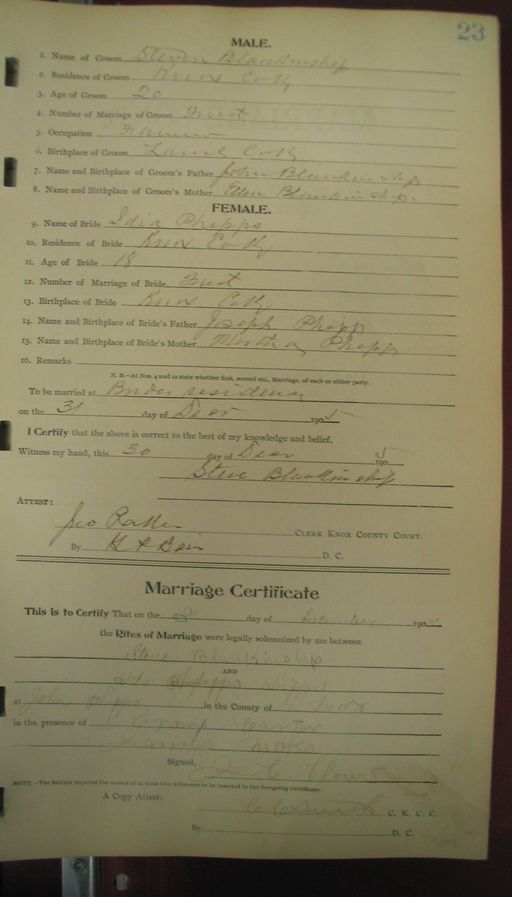 23
MALE.
1. Name of Groom Steven Blankinship
2. Residence of Groom Knox Co Ky
3. Age of Groom 20
4. Number of Marriage of Groom First
5. Occupation Farmer
6. Birthplace of Groom Co Ky
7. Name and Birthplace of Groom's Father John Blankinship
8. Name and Birthplace of Groom's Mother Ellen Blankinship.
FEMALE.
9. Name of Bride Phipps
10. Residence of Bride Knox Co Ky
11. Age of Bride 18
12. Number of Marriage of Bride First
13. Birthplace of Bride Knox Co Ky
14. Name and Birthplace of Bride's Father Joseph Phipps
15. Name and Birthplace of Bride's Mother Martha Phipps
16. Remarks
N. B.—At Nos. 4 and 12 state whether first, second etc., Marriage, of each or either party.
To be married at Brides residence
on the 31 day of 1905
I Certify that the above is correct to the best of my knowledge and belief.
Witness my hand, this 30 day of 1905
Steve Blankinship
ATTEST:
CLERK KNOX COUNTY COURT.
By D. C.
Marriage Certificate
This is to Certify That on the day of December 190
the Rites of Marriage were legally solemnized by me between
Steve Blankinship
AND
Phipps
at John in the County of Knox
in the presence of
Signed,
NOTE.—The Statute requires the names of at least two witnesses to be inserted in the foregoing Certificate.
A Copy Attest: C. K. C. C.
By D. C.